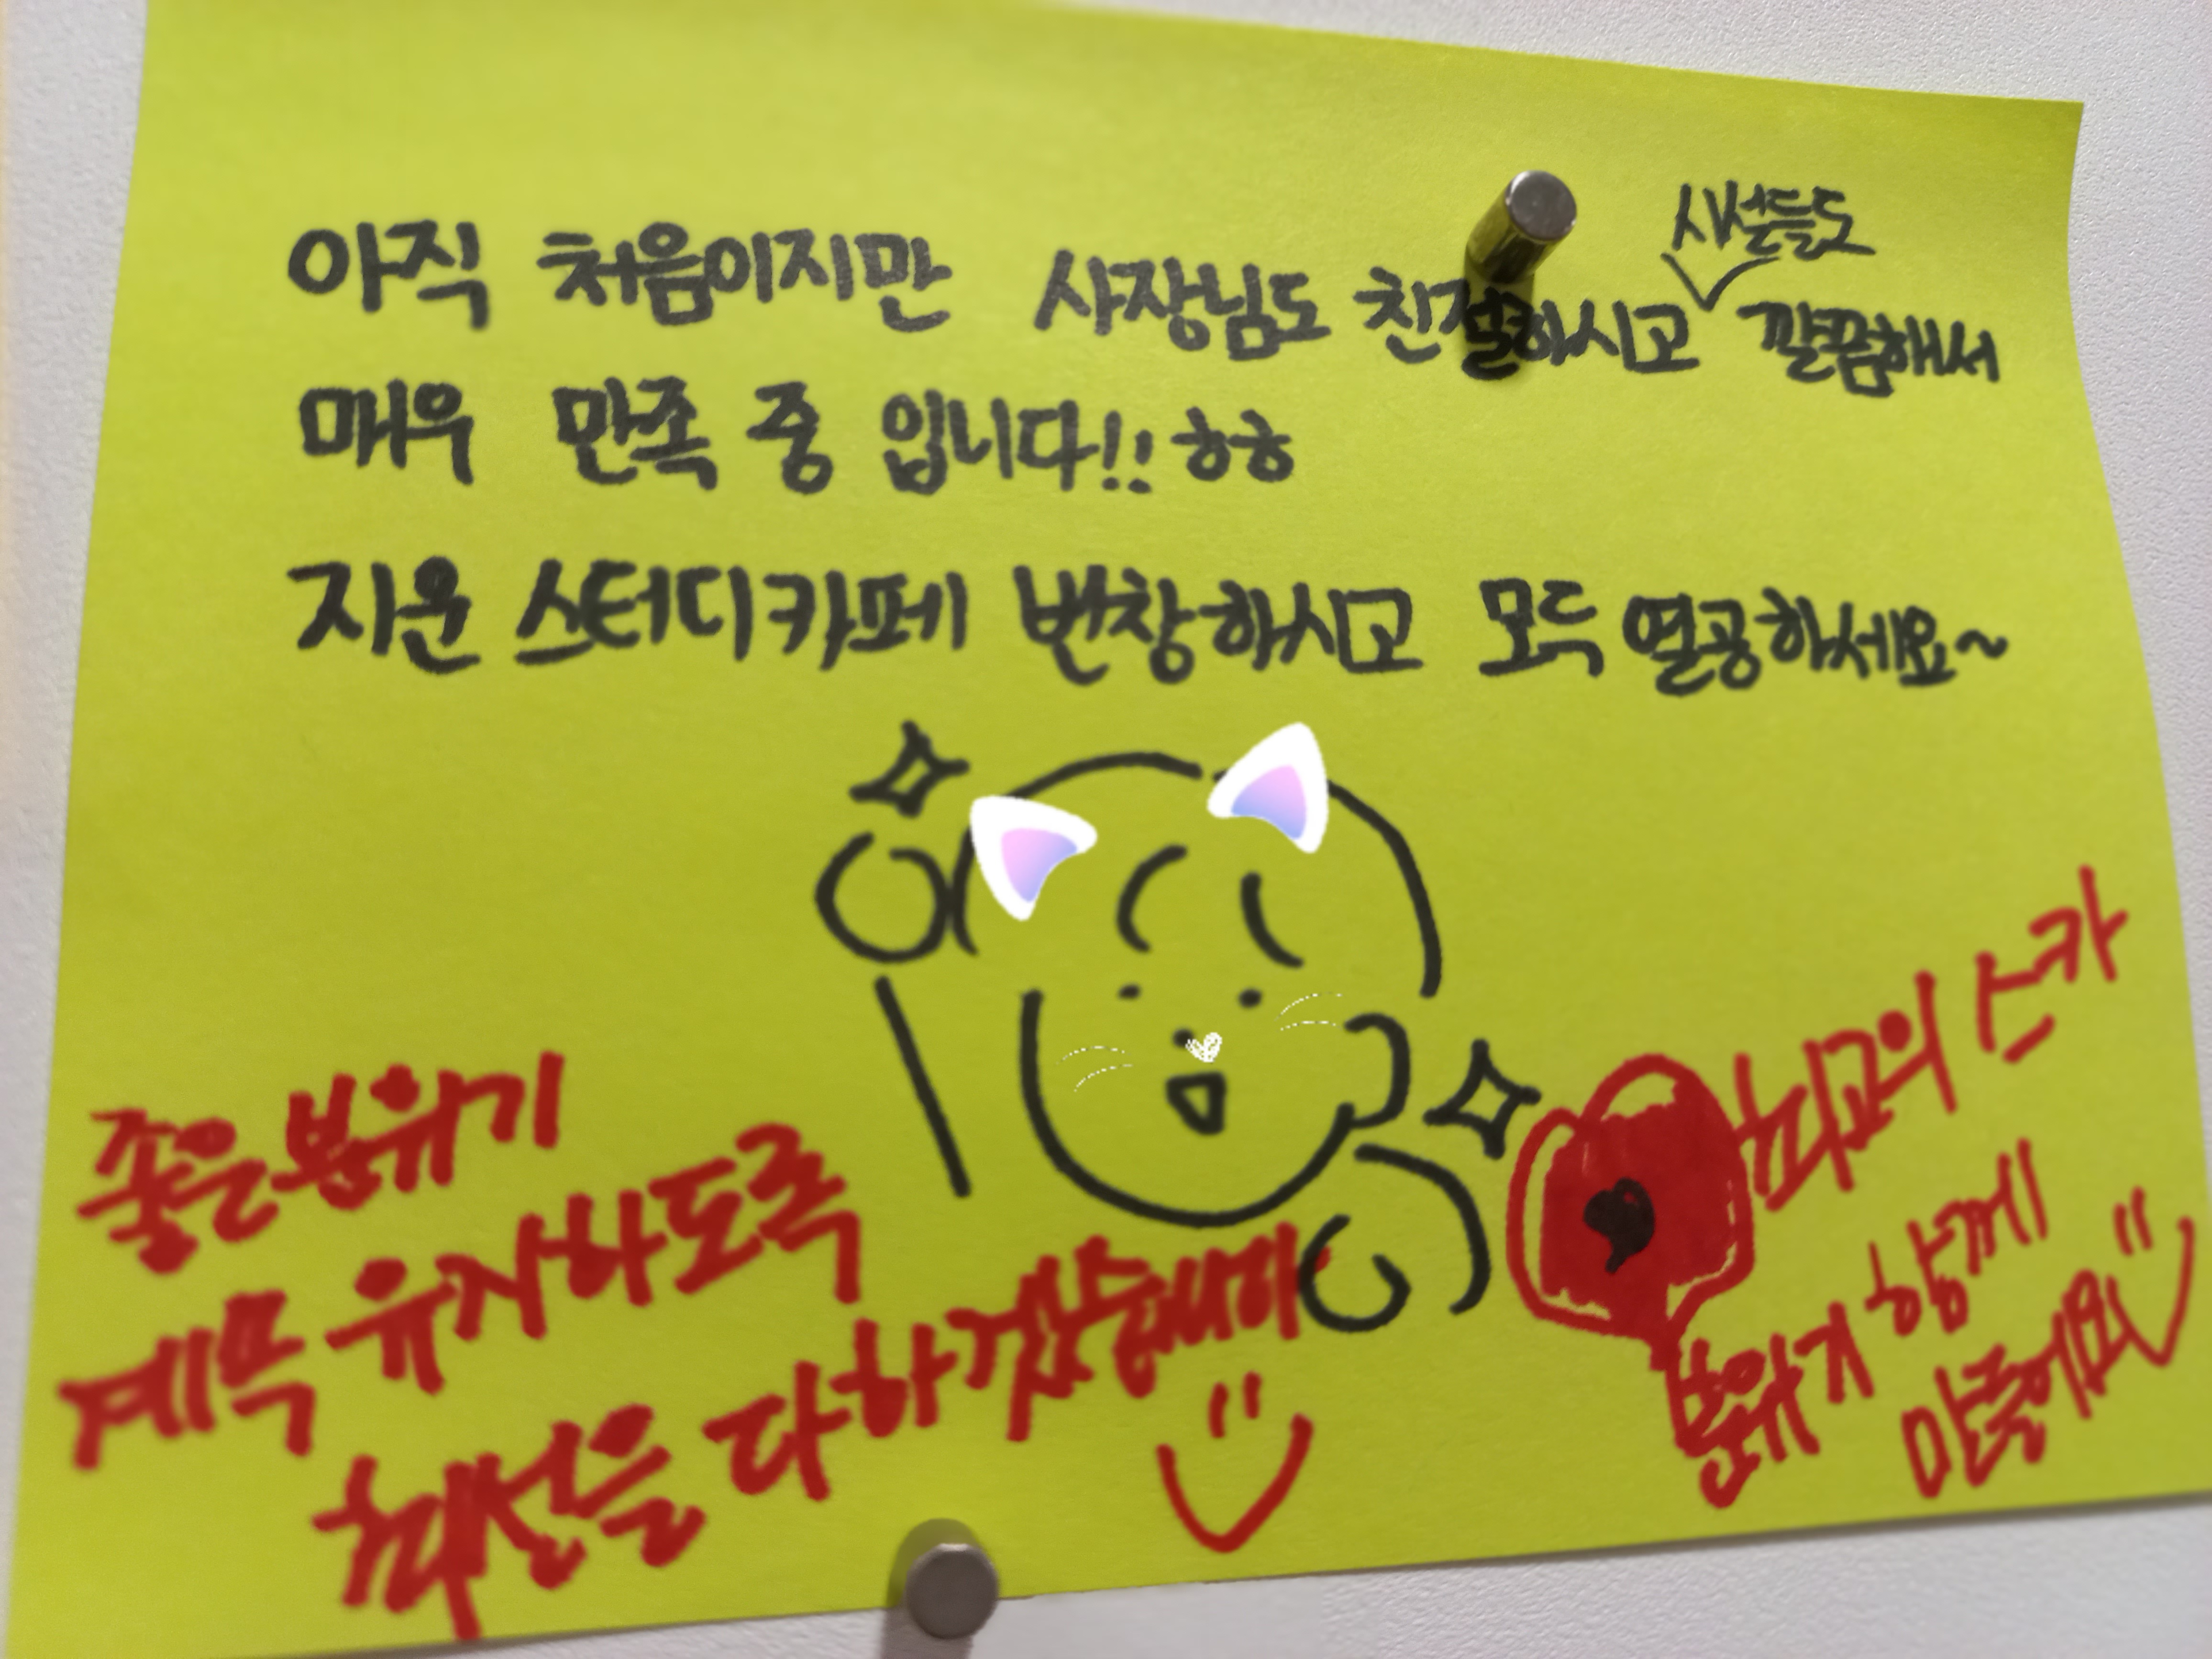 아직 처음이지만 사장님도 친절하시고 시설들도 깔끔해서
매우 만족 중 입니다!! ㅎㅎ
지운 스터디카페 번창하시고 모두 열공하세요~
좋은 분위기
계속 유지하도록
최선을 다하겠습니다
최고의 스카
분위기 함께
만들어요